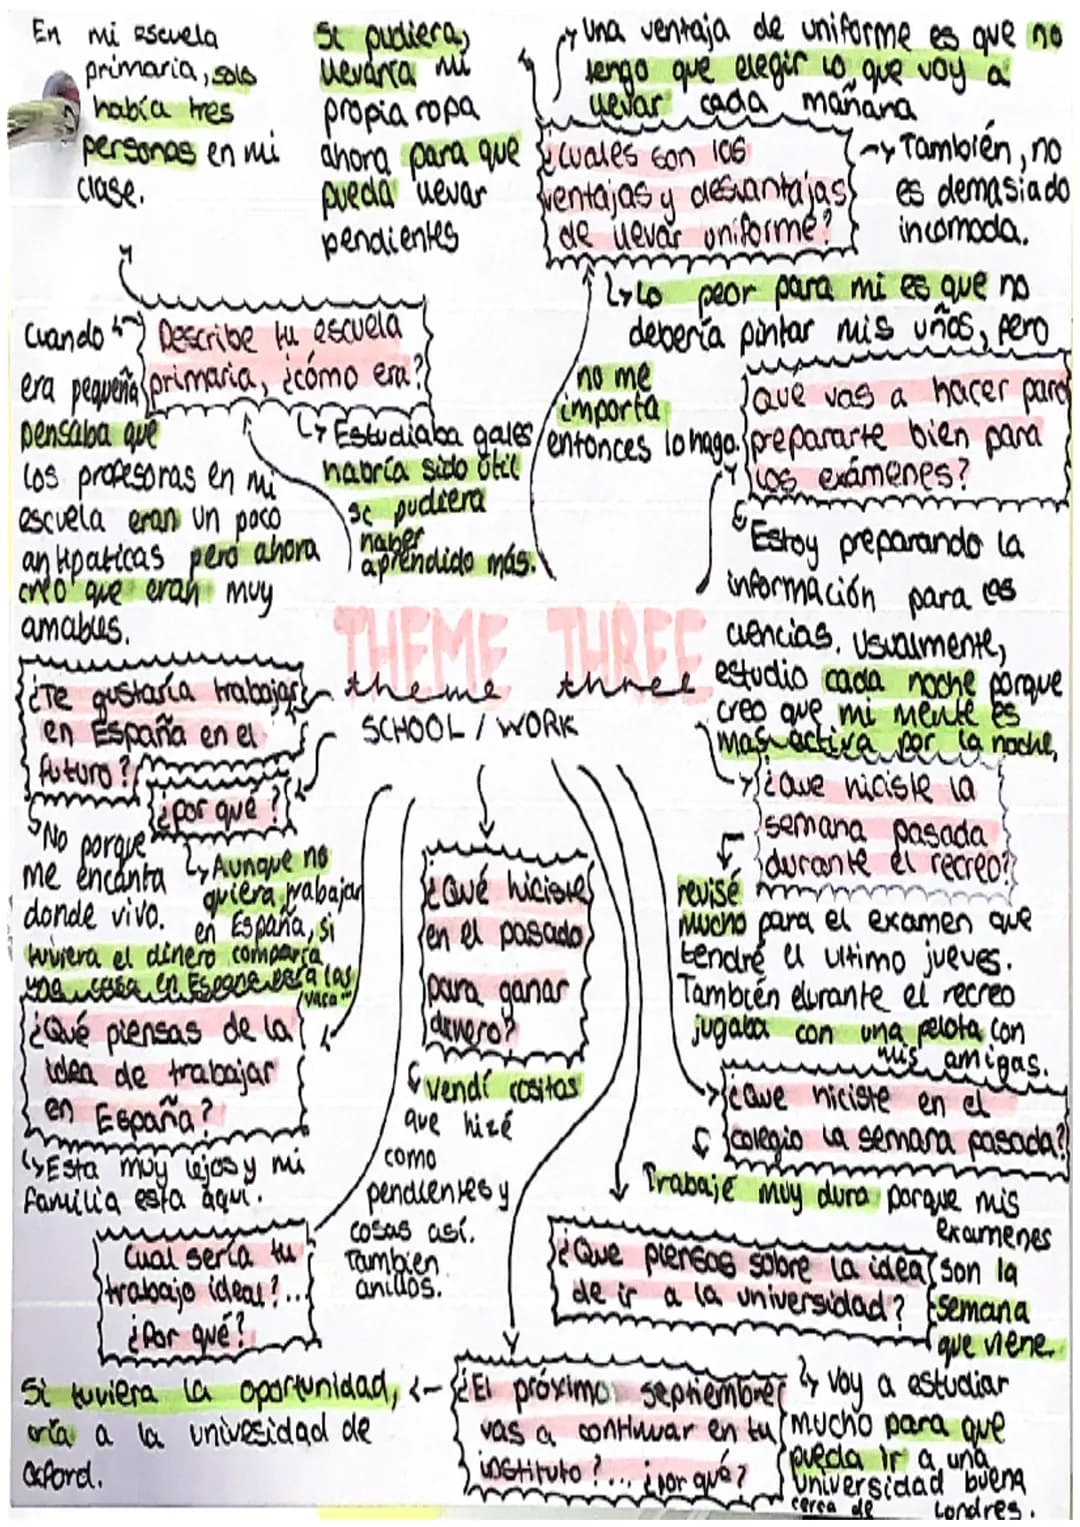 En mi escuela
primaria, solo
había tres
personas en mi
clase.
Si pudiera,
llevaría mi
propia ropa
ahora para que
pueda llevar
pendientes
Una ventaja de uniforme es que no
tengo que elegir lo que voy a
llevar cada mañana
¿Cuales son las
ventajas y desvantajas
de llevar uniforme?
También, no
es demasiado
incomoda.
Lo peor para mi es que no
debería pintar mis uñas, pero
no me
importa
entonces lo hago.
Describe tu escuela
primaria, ¿cómo era?
Cuando
era pequeña
pensaba que
los profesoras en mi
escuela eran un poco
antipaticas pero ahora
creo que eran muy
amables.
Estudiaba galés
habría sido útil
si pudiera
haber
aprendido más.
que vas a hacer para
prepararte bien para
los exámenes?
Estoy preparando la
información para las
ciencias. Usualmente,
estudio cada noche porque
creo que mi mente es
mas activa por la noche,
THEME THREE
theme three
SCHOOL / WORK
¿Te gustaría trabajar
en España en el
futuro?
¿por qué?
No porque
me encanta
donde vivo.
Aunque no
quiera trabajar
en España, si
tuviera el dinero compraría
una casa en Espana para las
vaca
¿Qué piensas de la
idea de trabajar
en España?
Esta muy lejos y mi
familia esta aquí.
Cual sería tu
trabajo ideal?...
¿Por qué?
¿Qué hiciste
en el pasado
para ganar
dinero?
vendí cositas
que hizé
como
pendientes y
cosas así.
Tambien
anillos.
¿Que hiciste la
semana pasada
durante el recreo?
revisé
mucho para el examen que
tendré el ultimo jueves.
También durante el recreo
jugaba con una pelota con
mis amigas.
¿Que hiciste en el
colegio la semana pasada?
Trabajé muy duro porque mis
examenes
son la
semana
que viene.
¿Que piensas sobre la idea
de ir a la universidad?
Voy a estudiar
mucho para que
pueda ir a una
universidad buena
cerca de Londres.
¿El próximo septiembre
vas a continuar en tu
instituto?... ¿por qué?
Si tuviera la oportunidad,
iría a la univesidad de
Oxford.